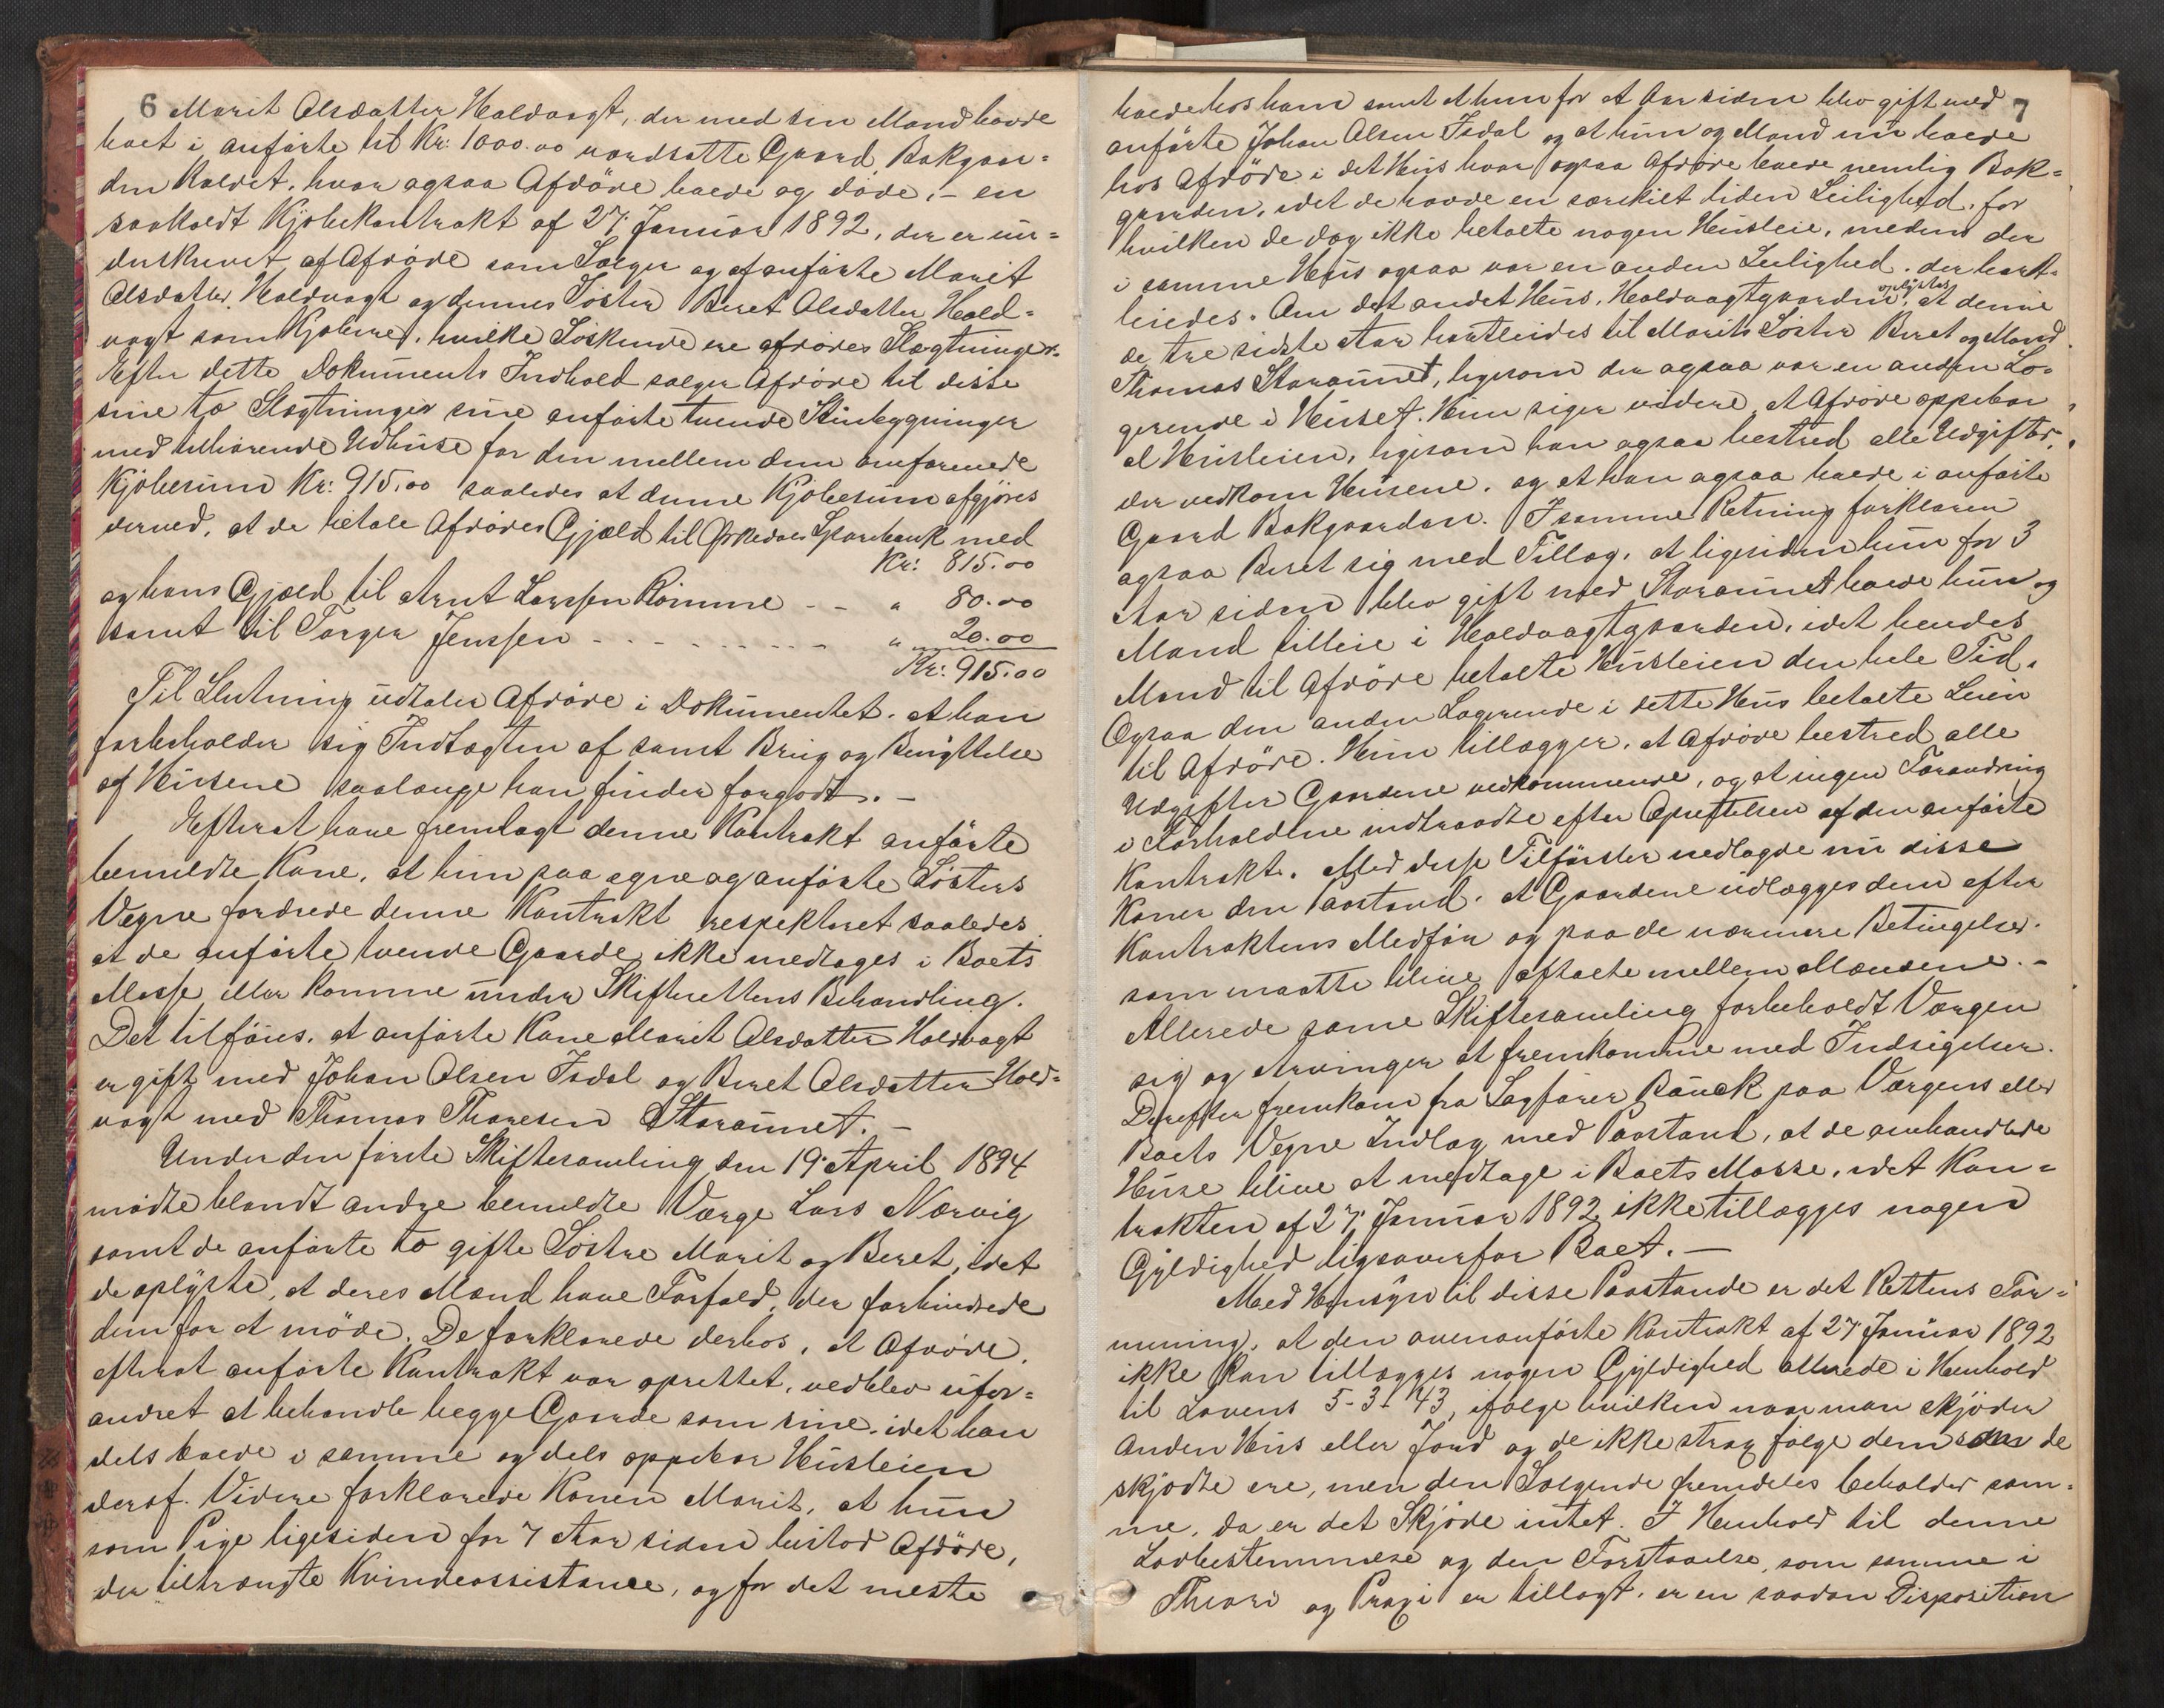 6 Marit Olsdatter Holdvagt, der med sin Mand havde
boet i anførte til Kr: 1000.00 værdsatte Gaard, Bakgaar=
den kaldet, hvor ogsaa Afdöde boede og döde, – en
saakaldt Kjøbekontrakt af 27. Januar 1892, der er un=
derskrevet af Afdöde som Sælger og af anførte Marit
Olsdatter Holdvagt og dennes Söster Beret Olsdatter Hold=
vagt som Kjøbere, hvilke Söskende ere afdödes Slægtninger.
Efter dette Dokuments Indhold sælger Afdöde til disse
sine to Slægtninger sine anførte tvende Steinbygninger
med tilhørende Udhuse for den mellem dem omforenede
Kjøbesum Kr: 915.00 saaledes at denne Kjøbesum afgjøres
derved, at de betale Afdödes Gjæld til Orkedals Sparebank med
Kr: 815.00
og hans Gjæld til Arnt Larssen Römme - - " 80.00
samt til Torger Jenssen - - - - - - - - " 20.00
Kr: 915.00
Til Slutning udtaler Afdöde i Dokumentet, at han
forbeholder sig Indtægten af samt Brug og Benyttelse
af Husene saalænge han finder forgodt. –
Efterat have fremlagt denne Kontrakt anførte
bemeldte Kone, at hun paa egne og anførte Sösters
Vegne fordrede denne Kontrakt respekteret saaledes
at de anførte tvende Gaarde ikke medtages i Boets
Masse eller komme under Skifterettens Behandling.
Det tilföies, at anførte Kone Marit Olsdatter Holdvagt
er gift med Johan Olsen Isdal og Beret Olsdatter Hold=
vagt med Thomas Thoresen Storaunet. –
Under den første Skiftesamling den 19. April 1894
mødte blandt andre bemeldte Værge Lars Nærvig
samt de anførte to gifte Söstre Marit og Beret, idet
de oplyste, at deres Mænd have Forfald, der forhindrede
dem for at möde. De forklarede derhos, at Afdöde,
efterat anførte Kontrakt var oprettet, vedblev ufor=
andret at behandle begge Gaarde som sine, idet han
dels boede i samme og dels oppebar Husleien
deraf. Videre forklarede Konen Marit, at hun
som Pige ligesiden for 7 Aar siden bistod Afdöde,
der tiltrængte Kvindeassistance, og for det meste
7
boede hos ham samt at hun for et Aar siden blev gift med
anførte Johan Olsen Isdal og at hun og Mand nu boede
hos Afdöde i det Hus hvor ogsaa Afdöde boede nemlig Bak=
gaarden, idet de havde en særskilt liden Leilighed, for
hvilken de dog ikke betalte nogen Husleie, medens der
i samme Hus ogsaa var en anden Leilighed, der bort=
leiedes. Om det andet Hus, Holdvagtgaarden, oplystes, at denne
de tre sidste Aar bortleiedes til Marits Söster Beret og Mand
Thomas Storaunet, ligesom der ogsaa var en anden Lo=
gerende i Huset. Hun siger videre, at Afdöde oppebar
al Husleien, ligesom han ogsaa bestred alle Udgifter,
der vedkom Husene, og at han ogsaa boede i anførte
Gaard Bakgaarden. I samme Retning forklarer
ogsaa Beret sig med Tillæg, at ligesiden hun for 3
Aar siden blev gift med Storaunet boede hun og
Mand tilleie i Holdvagtgaarden, idet hendes
Mand til Afdöde betalte Husleien den hele Tid.
Ogsaa den anden Logerende i dette Hus betalte Leien
til Afdöde. Hun tillægger, at Afdöde bestred alle
Udgifter Gaardene vedkommende, og at ingen Forandring
i Forholdene indtraadte efter Oprettelsen af den anførte
Kontrakt. Med disse Tilförsler nedlagde nu disse
Koner den Paastand, at Gaardene udlægges dem efter
Kontraktens Medför og paa de nærmere Betingelser,
som maatte blive aftalte mellem Mændene. –
Allerede samme Skiftesamling forbeholdt Værgen
sig og Arvinger at fremkomme med Indsigelser.
Derefter fremkom fra Sagfører Bauck paa Værgens eller
Boets Vegne Indlæg med Paastand, at de omhandlede
Huse blive at medtage i Boets Masse, idet Kon=
trakten af 27. Januar 1892 ikke tillægges nogen
Gyldighed ligeoverfor Boet. –
Med Hensyn til disse Paastande er det Rettens For=
mening, at den ovenanførte Kontrakt af 27 Januar 1892
ikke kan tillægges nogen Gyldighed allerede i Henhold
til Lovens 5-3-43, ifølge hvilken naar man skjøder
Anden Hus eller Jord og de ikke strax følge dem som de
skjødte ere, men den Sælgende fremdeles beholder sam=
me, da er det Skjøde intet. I Henhold til denne
Lovbestemmelse og den Forstaaelse, som samme i
Theori og Praxi er tillagt, er en saadan Disposition